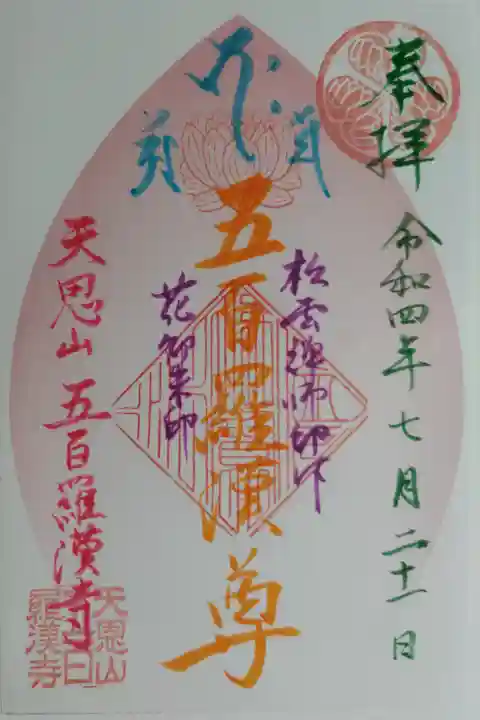 奉拝
令和四年七月二十一日
五百羅漢尊
花御朱印
天恩山 五百羅漢寺
天恩山
五百
羅漢寺